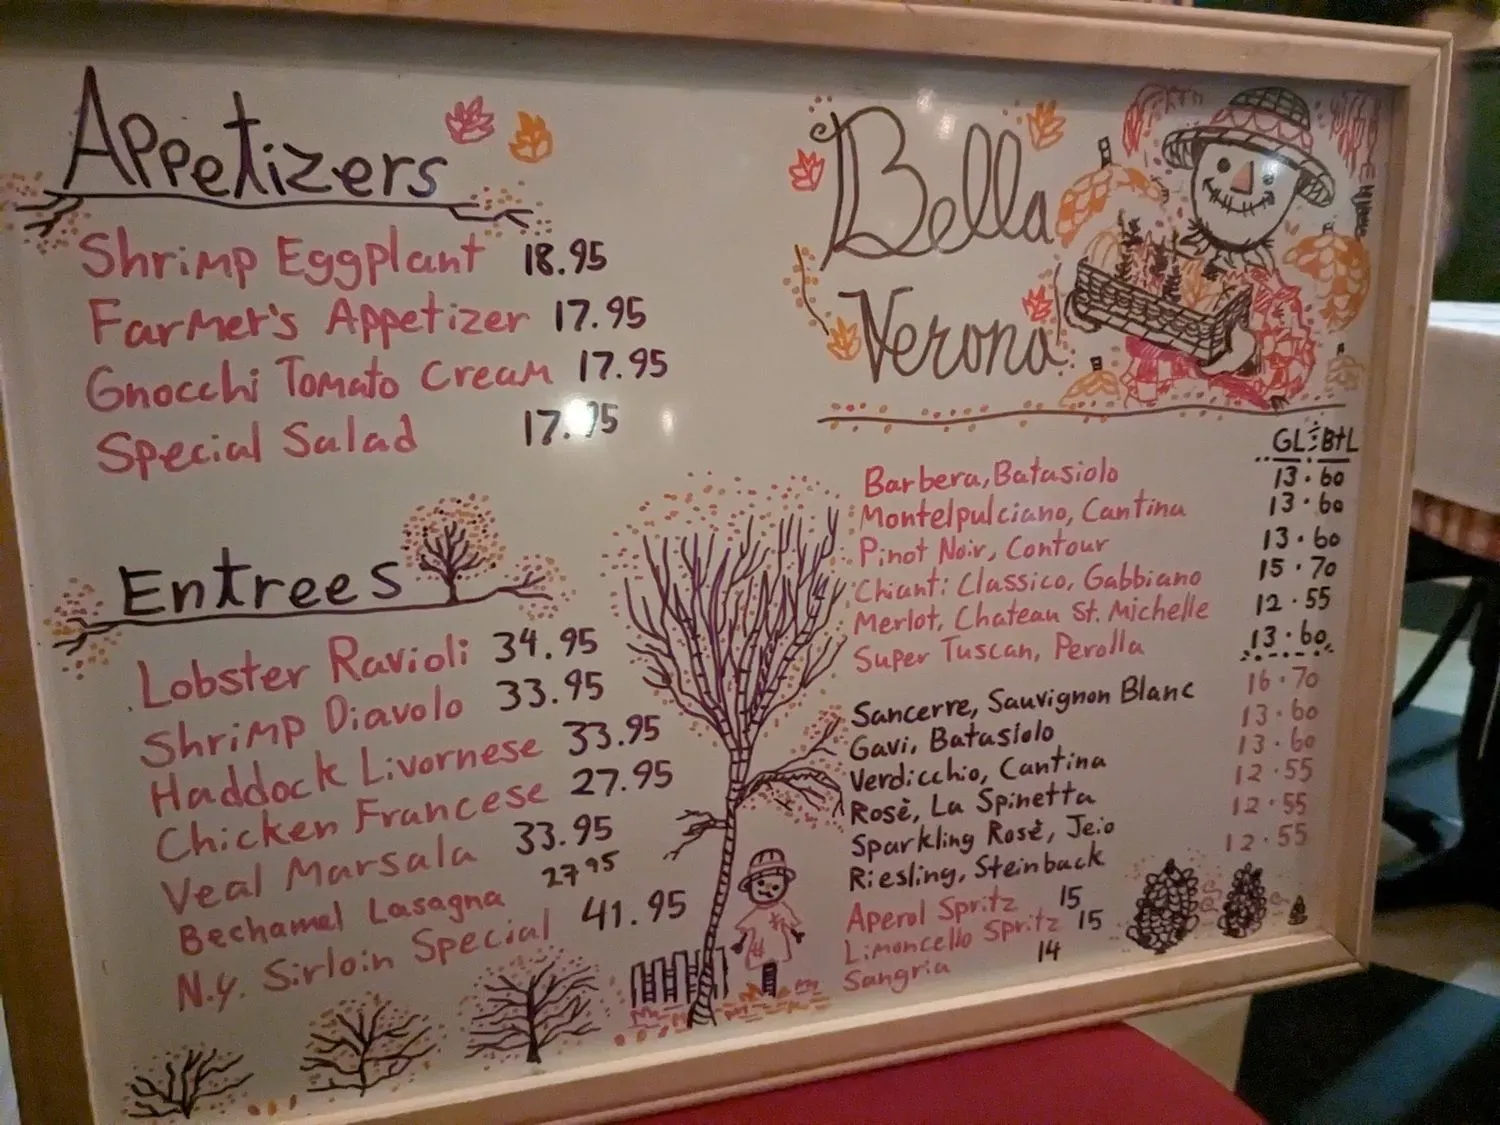 Appetizers
Shrimp Eggplant 18.95
Farmer's Appetizer 17.95
Gnocchi Tomato Cream 17.95
Special Salad 17.95
Entrees
Lobster Ravioli 34.95
Shrimp Diavolo 33.95
Haddock Livornese 33.95
Chicken Francese 27.95
Veal Marsala 33.95
Bechamel Lasagna 27.95
N.Y. Sirloin Special 41.95
Bella
Verona
GL Btl
Barbera, Batasiolo 13.60
Montelpulciano, Cantina 13.60
Pinot Noir, Contour 13.60
Chianti Classico, Gabbiano 15.70
Merlot, Chateau St. Michelle 12.55
Super Tuscan, Perolla 13.60
Sancerre, Sauvignon Blanc 16.70
Gavi, Batasiolo 13.60
Verdicchio, Cantina 13.60
Rosè, La Spinetta 12.55
Sparkling Rosè, Jeio 12.55
Riesling, Steinback 12.55
Aperol Spritz 15
Limoncello Spritz 15
Sangria 14